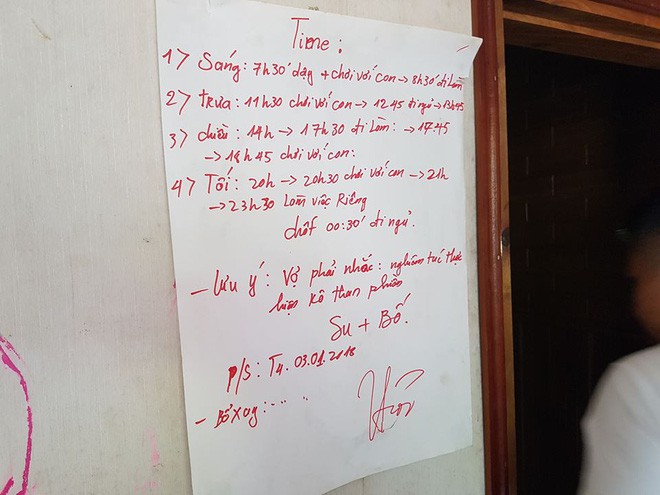 Time:
1> Sáng: 7h30' dạy + chơi với con → 8h30' đi làm
2> trưa: 11h30 chơi với con → 12 45 đi ngủ → 13h45
3> chiều: 14h → 17h30 đi làm: → 17.45
→ 18h45 chơi với con:
4> Tối: 20h → 20h30 chơi với con → 21h
→ 23h30 Làm việc Riêng
chốt 00:30' đi ngủ.
- Lưu ý: Vợ phải nhắc: nghiêm túc thực
hiện kô than phiền
Su + Bố.
P/S: T4. 03.01.2018
- Bổ xung: .. ..